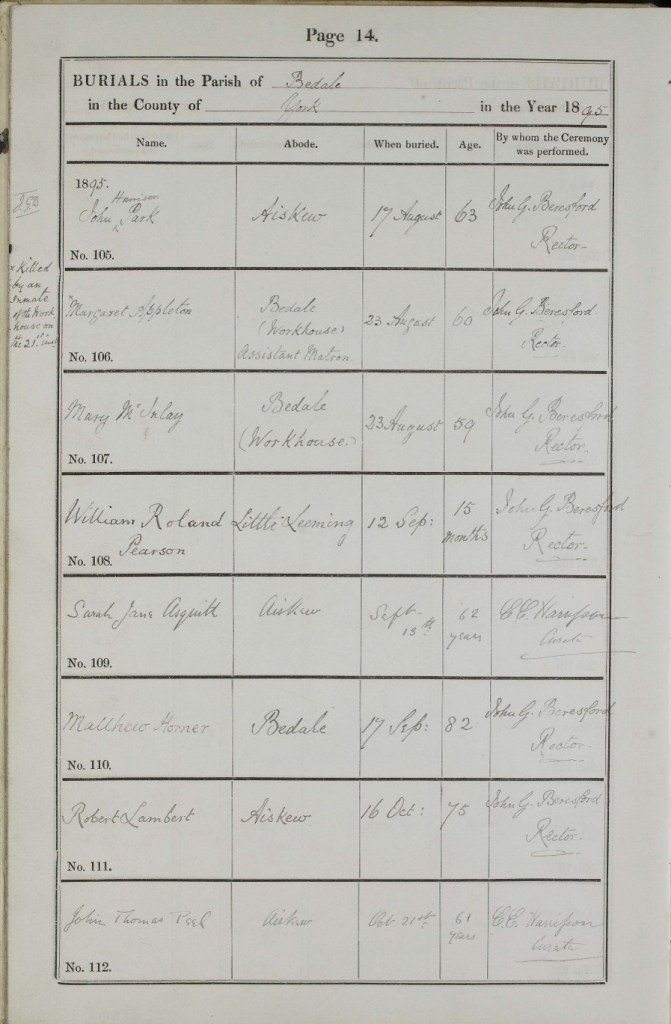 Page 14.
BURIALS in the Parish of Bedale
in the County of York in the Year 1895
Name.
Abode.
When buried.
Age.
By whom the Ceremony
was performed.
1895.
Harrison
John ^ Park
No. 105.
Aiskew
17 August
63
John G. Beresford
Rector.
x Killed
by an
Inmate
of the Work
house on
the 21st inst
x Margaret Appleton
No. 106.
Bedale
(Workhouse)
Assistant Matron.
23 August
60
John G. Beresford
Rector.
Mary McInlay
No. 107.
Bedale
(Workhouse.)
23 August
59
John G. Beresford
Rector.
William Roland
Pearson
No. 108.
Little Leeming
12 Sep:
15
months
John G. Beresford
Rector.
Sarah Jane Asquith
No. 109.
Aiskew
Sept.
13th
62
years
C.C. Harrison
Curate
Matthew Horner
No. 110.
Bedale
17 Sep:
82
John G. Beresford
Rector.
Robert Lambert
No. 111.
Aiskew
16 Oct:
75
John G. Beresford
Rector.
John Thomas Peel
No. 112.
Aiskew
Oct 21st
61
years
C.C. Harrison
Curate